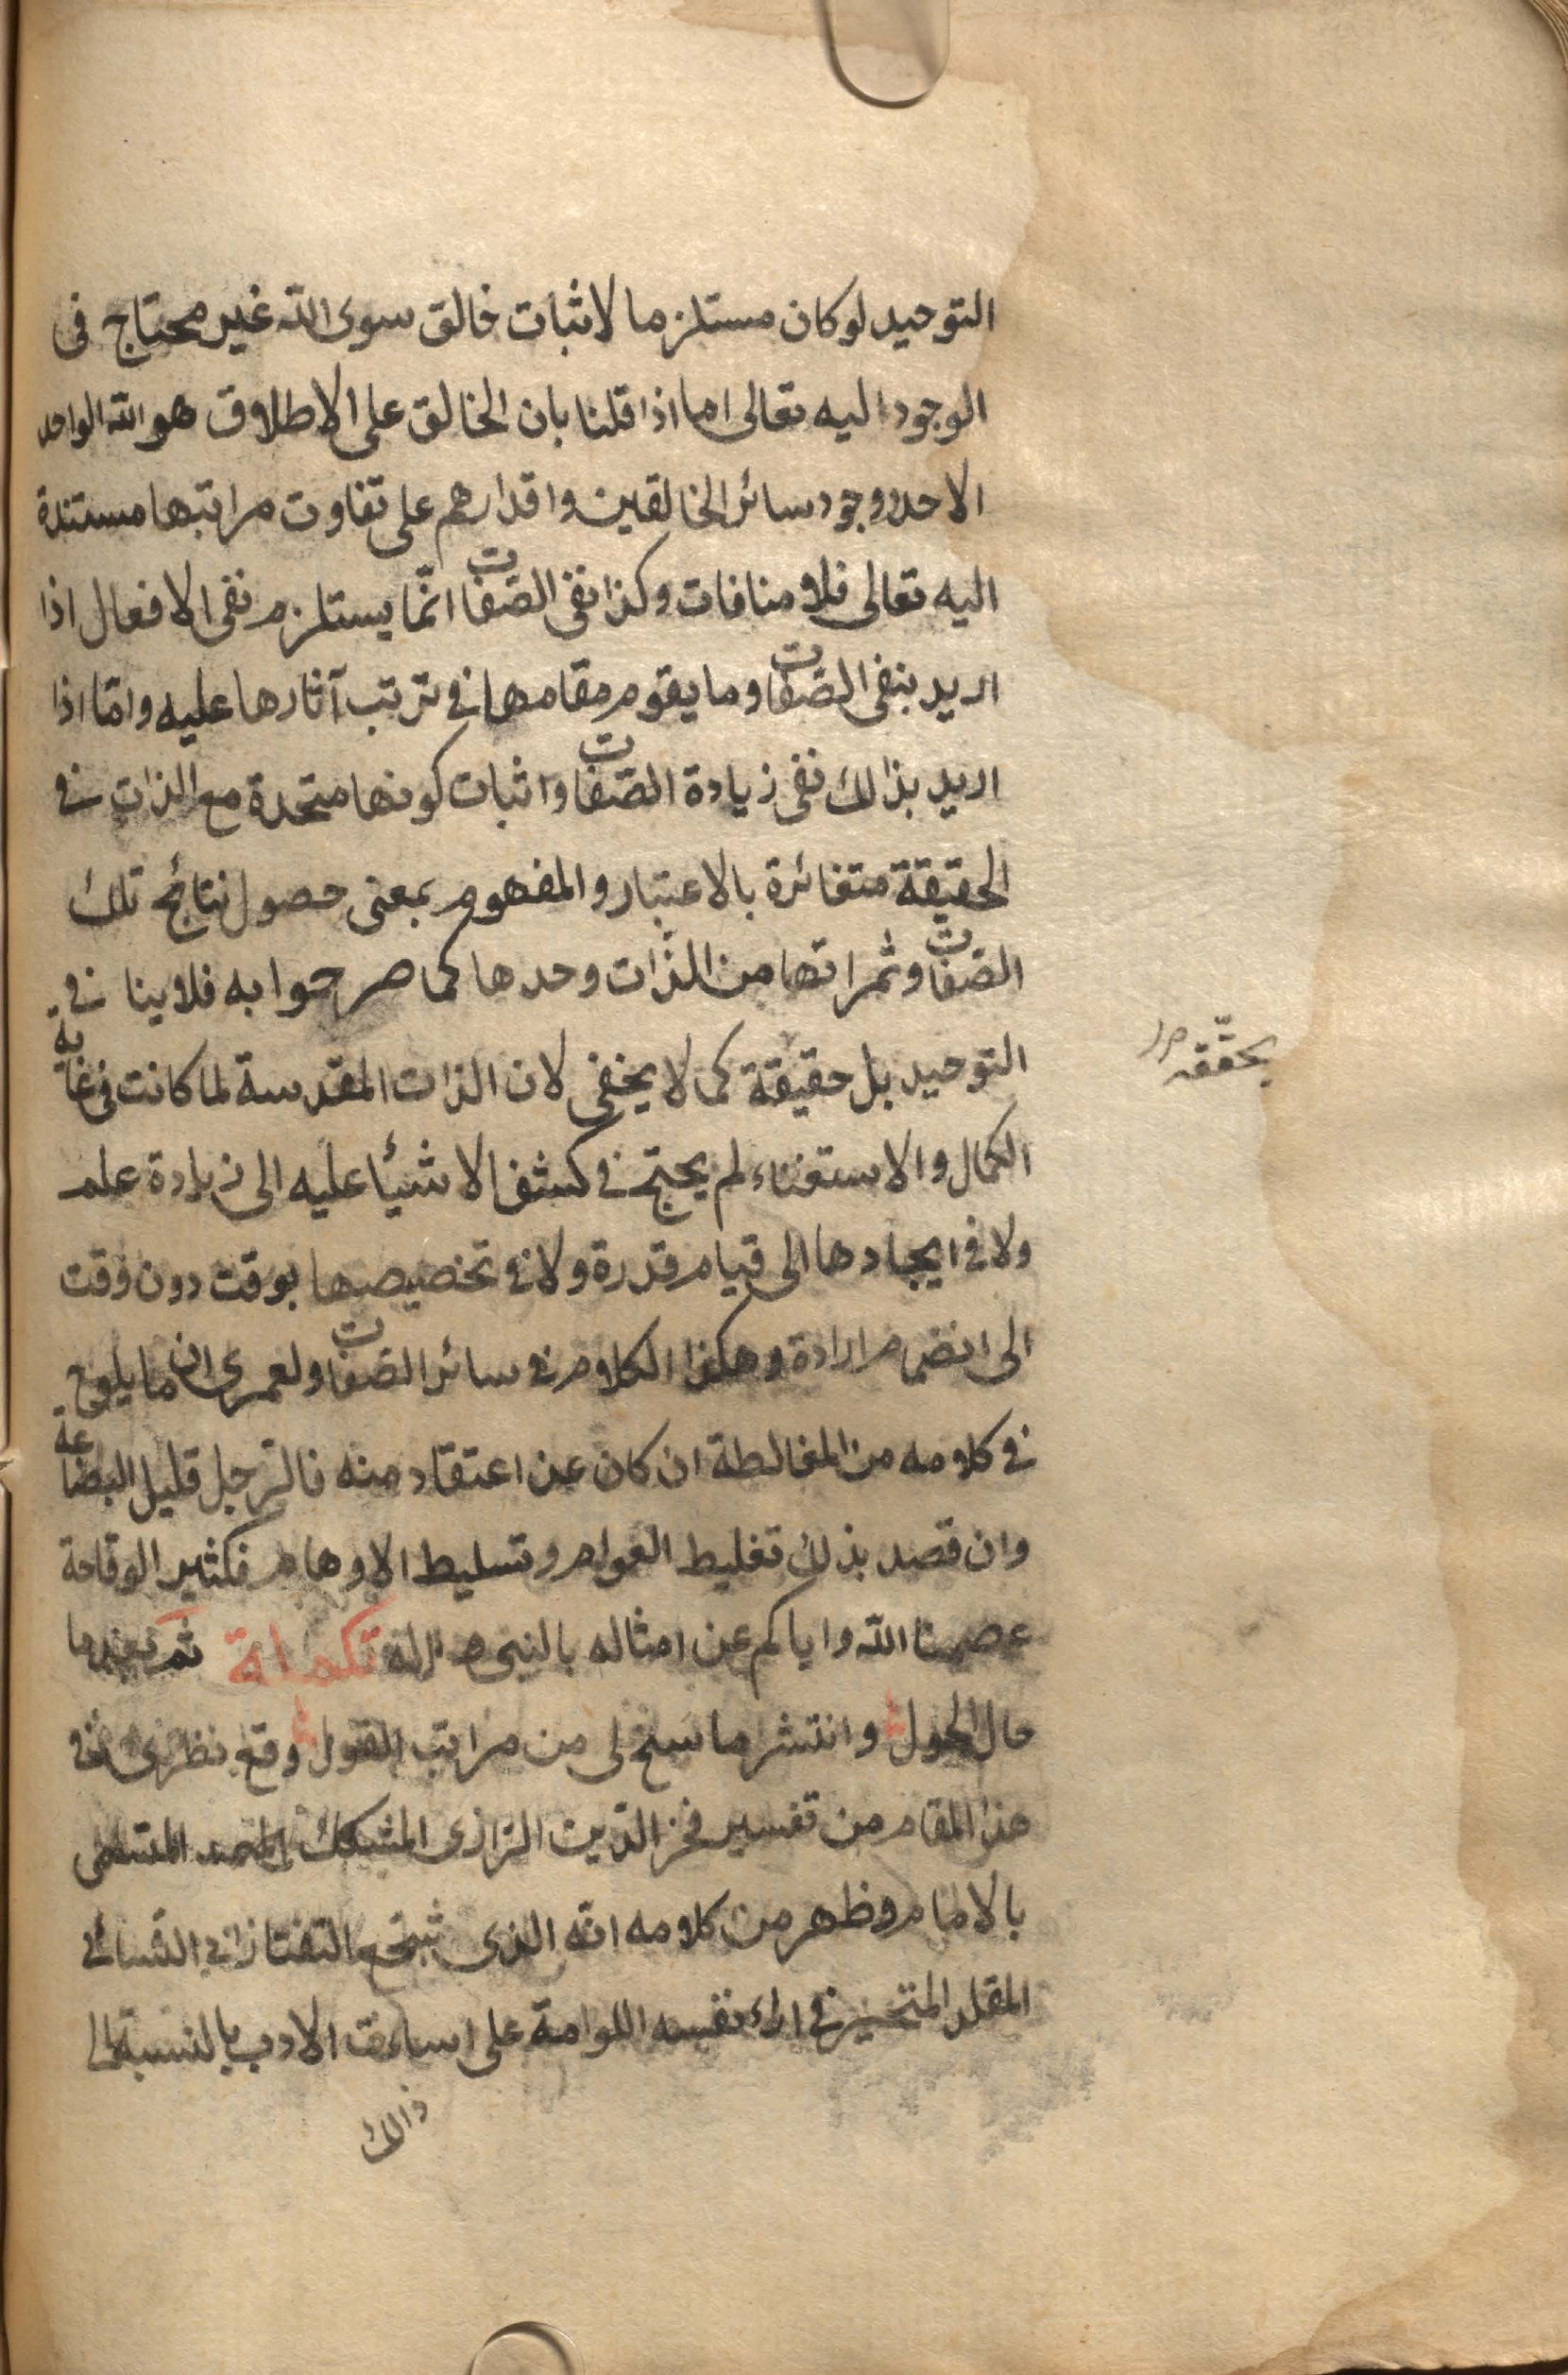 التوحيد لو كان مستلزما لاثبات خالق سوى الله غير محتاج فى
الوجود اليه تعالى اما اذا قلنا بان الخالق على الاطلاق هو الله الواحد
الاحد ووجود سائر الخالقين واقدارهم على تفاوت مراتبها مستندة
اليه تعالى فلا منافات وكذا نفى الصفات انّما يستلزم نفى الافعال اذا
اريد بنفى الصفات وما يقوم مقامها في ترتب آثارها عليه وامّا اذا
اريد بذالك نفى زيادة الصفات واثبات كونها متحدة مع الذات في
الحقيقة متغائرة بالاعتبار والمفهوم بمعنى حصول نتائج تلك
الصفات وثمراتها من الذّات وحدها كما صرحوا به فلا ينا في
التوحيد بل حقيقة كما لا يخفى لان الذات المقدسة لما كانت فى غاية
يحقّقه
الكمال والاستغناء لم يحتج في كشف الاشيأ عليه الى زيادة علم
ولا فى ايجادها الى قيام قدرة ولا في تخصيصها بوقت دون وقت
الى انضمام ارادة وهكذا الكلام في سائر الصفات ولعمرى ان ما يلوح
في كلامه من المغالطة ان كان عن اعتقاد منه فالرّجل قليل البضاعة
وان قصد بذلك تغليط العوام وتسليط الاوهام فكثير الوقاحة
عصمنا الله واياكم عن امثاله بالنبى وآله تكملة ثم بعدما
حال الحول وانتشر ما سنح لى من مراتب القول وقع نظرى في
هذا المقام من تفسير فخر الدّين الرّازى المشكك المتسمى
بالامام وظهر من كلامه انّه الذى شجّع التفتازانى الشّائى
المقلد المتحيز في اراء نفسه اللوامة على اسائة الادب بالنسبة الى
ذالك